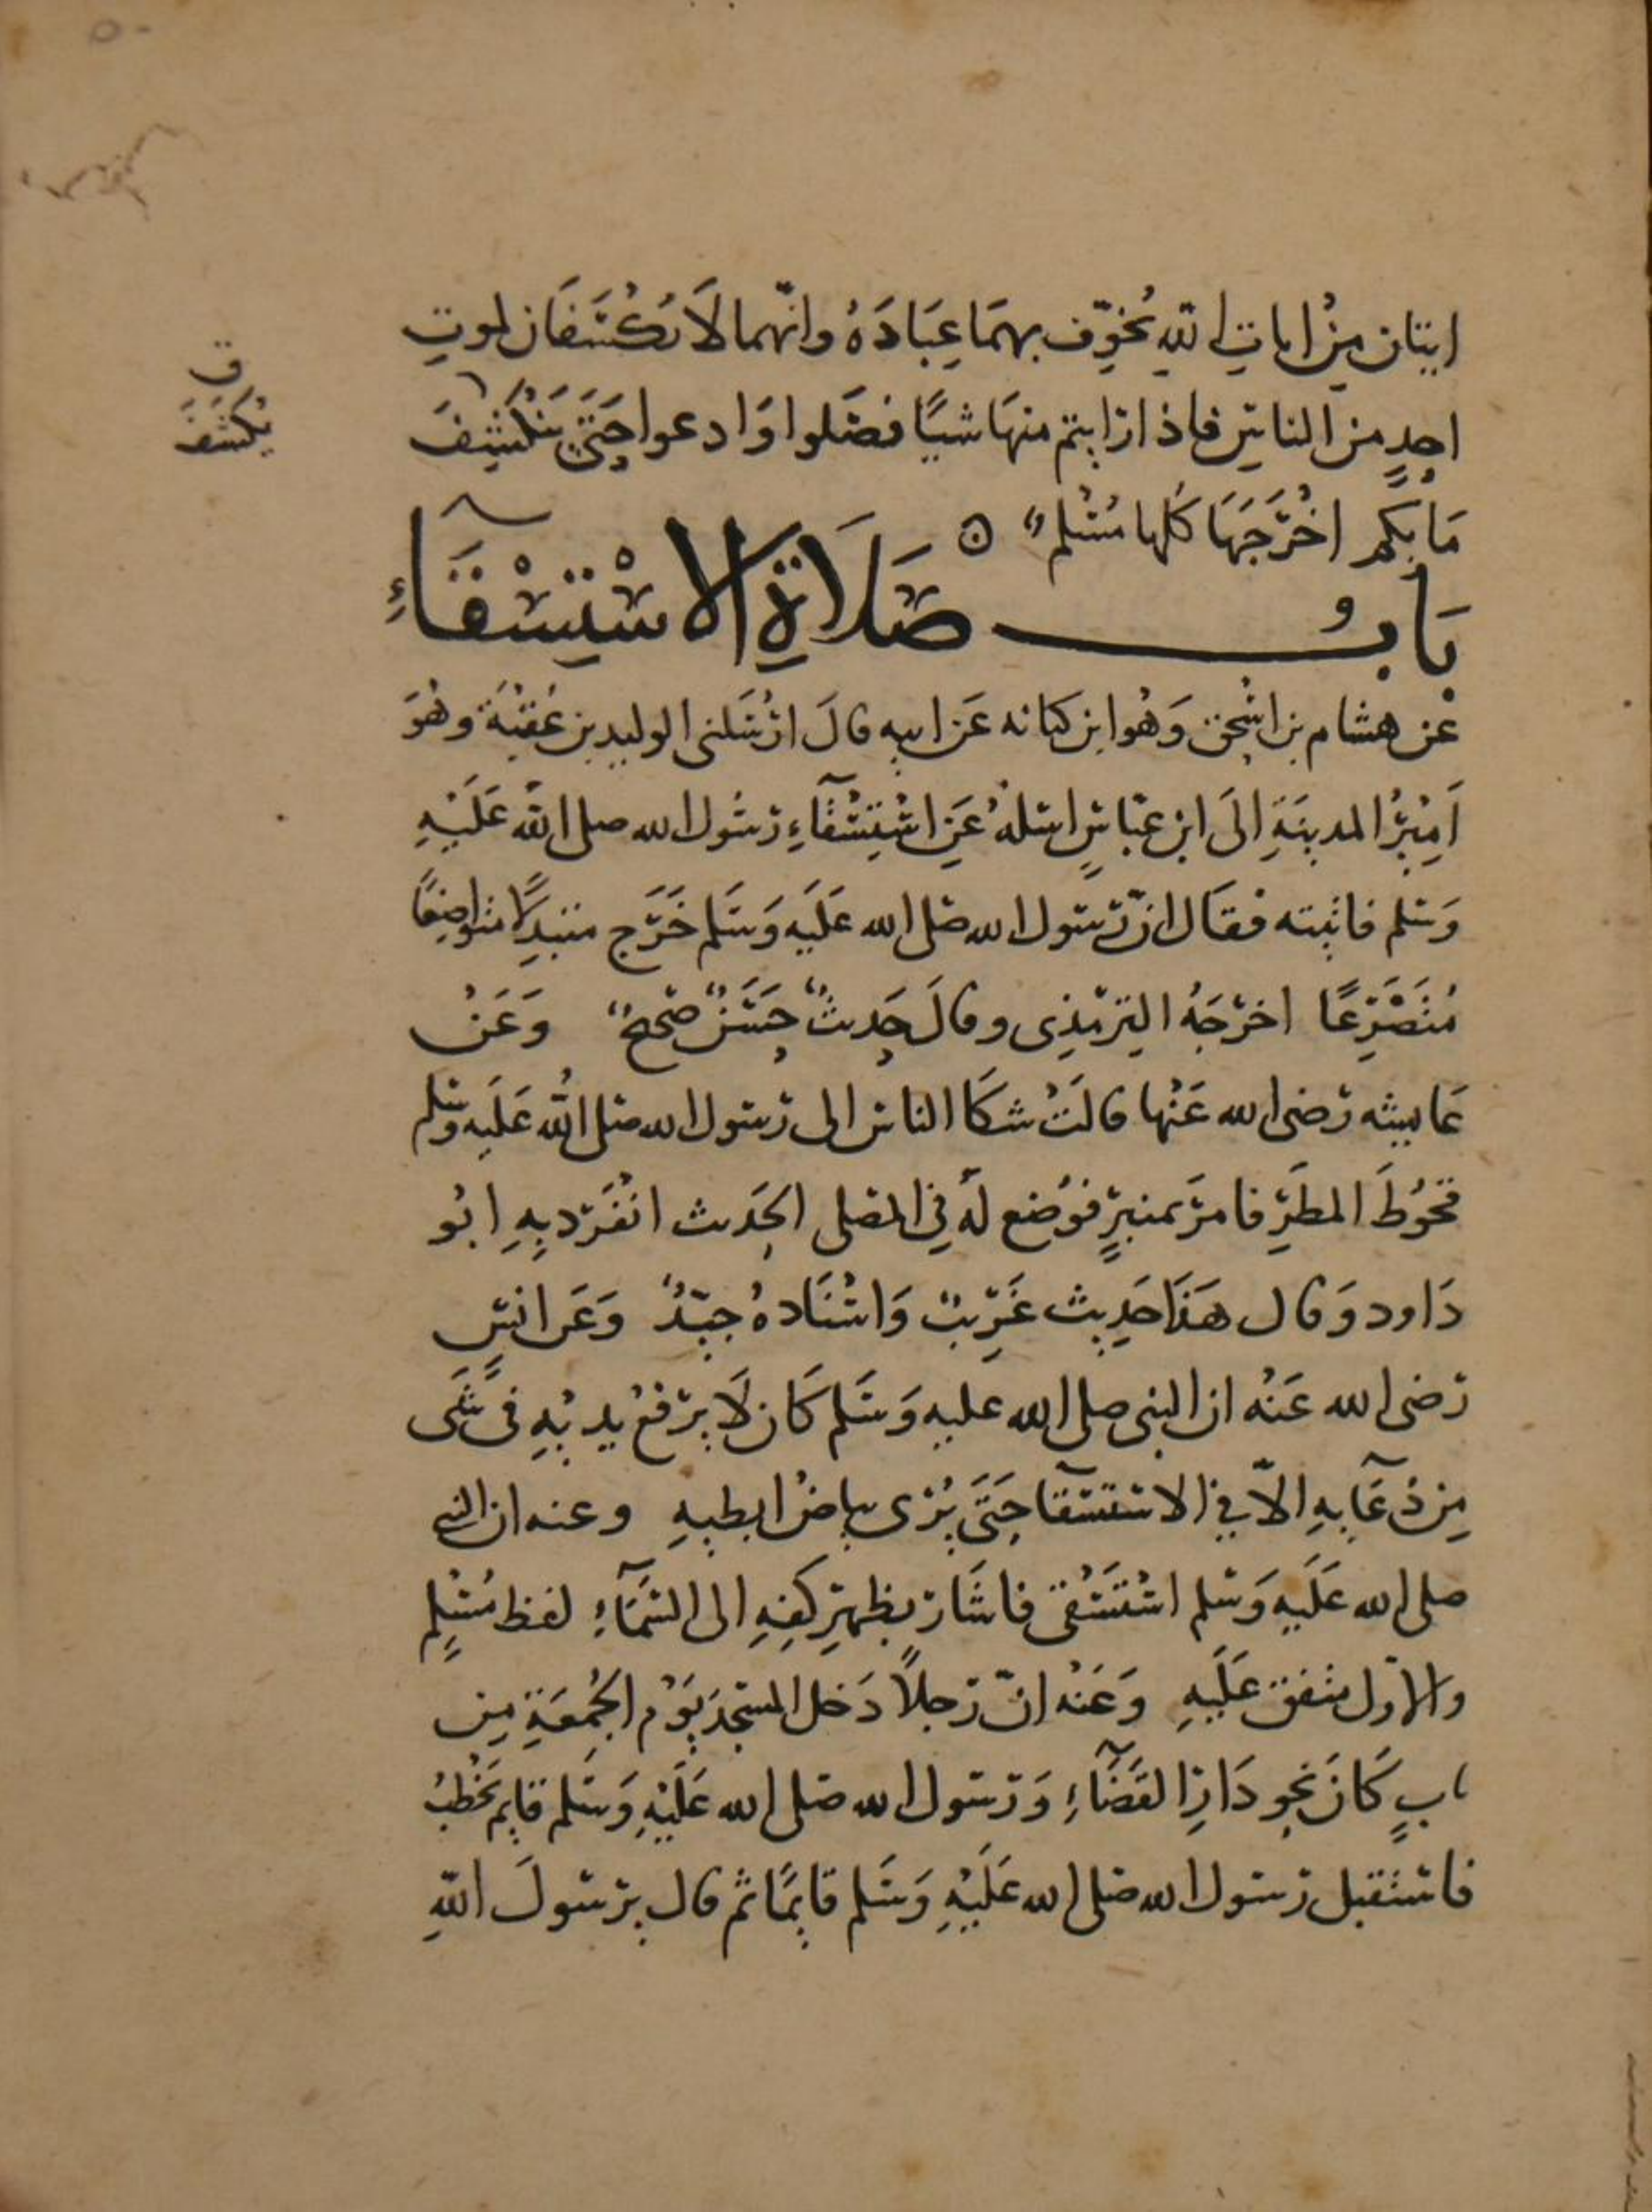 ق
يُكشَفَ
ايتان مِنْ ايات اللهِ يُخوِّف بهمَا عِبَادَهُ وانّهما لَا يَكْسَفَان لموتِ
احدٍ من الناسِ فاذا رايتم منهَا شيًا فصَلوا وَادعوا حَتَّى يَنْكَشِفَ
مَا بكم اخْرَجَهَا كُلها مُسْلم
بَابُ صَلَاةِ الاسْتِسْقَآءِ
عَن هشام بن اسْحق وَهُو ابن كنانه عَن ابيه قالَ ارْسَلنى الوليد بن عُقْبَة وهُوَ
اَمِيْرُ المدينَةِ الَى ابن عبّاسٍ اسلهُ عَنِ اسْتِسْقَآءِ رَسُول الله صلى اللهُ عَلَيْهِ
وَسَلم فاتيته فقَال انّ رَسول الله صَلى الله عَلَيه وَسَلم خَرَج متبدِلًا متواضِعًا
مُتَضَرِّعًا اخرَجَهُ التِرمذِى وقالَ حَديثٌ حَسَنٌ صَحيحٌ وَعَنْ
عَايشه رَضى الله عَنْها قالَتْ شكَا الناس الى رَسول الله صَلى اللهُ عَلَيه وسَلم
قحُوطَ المطَرِ فامرَ بمنبرٍ فوُضع لهُ فِي المصَلى الحَديث انْفَرَد بِهِ ابُو
دَاود وَقال هَذَا حَدِيث غَرِيْبٌ وَاسْنَادهُ جيّدٌ وَعَن انسٍ
رَضى الله عَنْهُ ان النبى صلى الله عليه وَسَلم كَان لَا يرْفعُ يديْهِ فى شَىءٍ
مِن دُعَآيهِ الّا فِي الاسْتسْقَآ حَتَّى يُرى بياضُ ابطيهِ وعنه ان النبى
صلى الله عَلَيه وَسَلم اسْتَسْقى فاشَار بظهرِ كفِهِ الى السَّمَآءِ لفظ مُسْلِم
والاوّل متفق عَلَيهِ وَعَنْه انّ رَجلًا دَخل المسْجدَ يَوْم الجُمعَةِ مِن
بابٍ كَانَ نَحو دَارِ القَضَآءِ وَرَسول الله صَلى الله عَلَيْهِ وَسَلم قايم يَخْطُبُ
فاسْتقبل رَسول الله صَلى الله عَلَيْهِ وَسَلم قايِمًا ثم قال يرَسولَ اللهِ